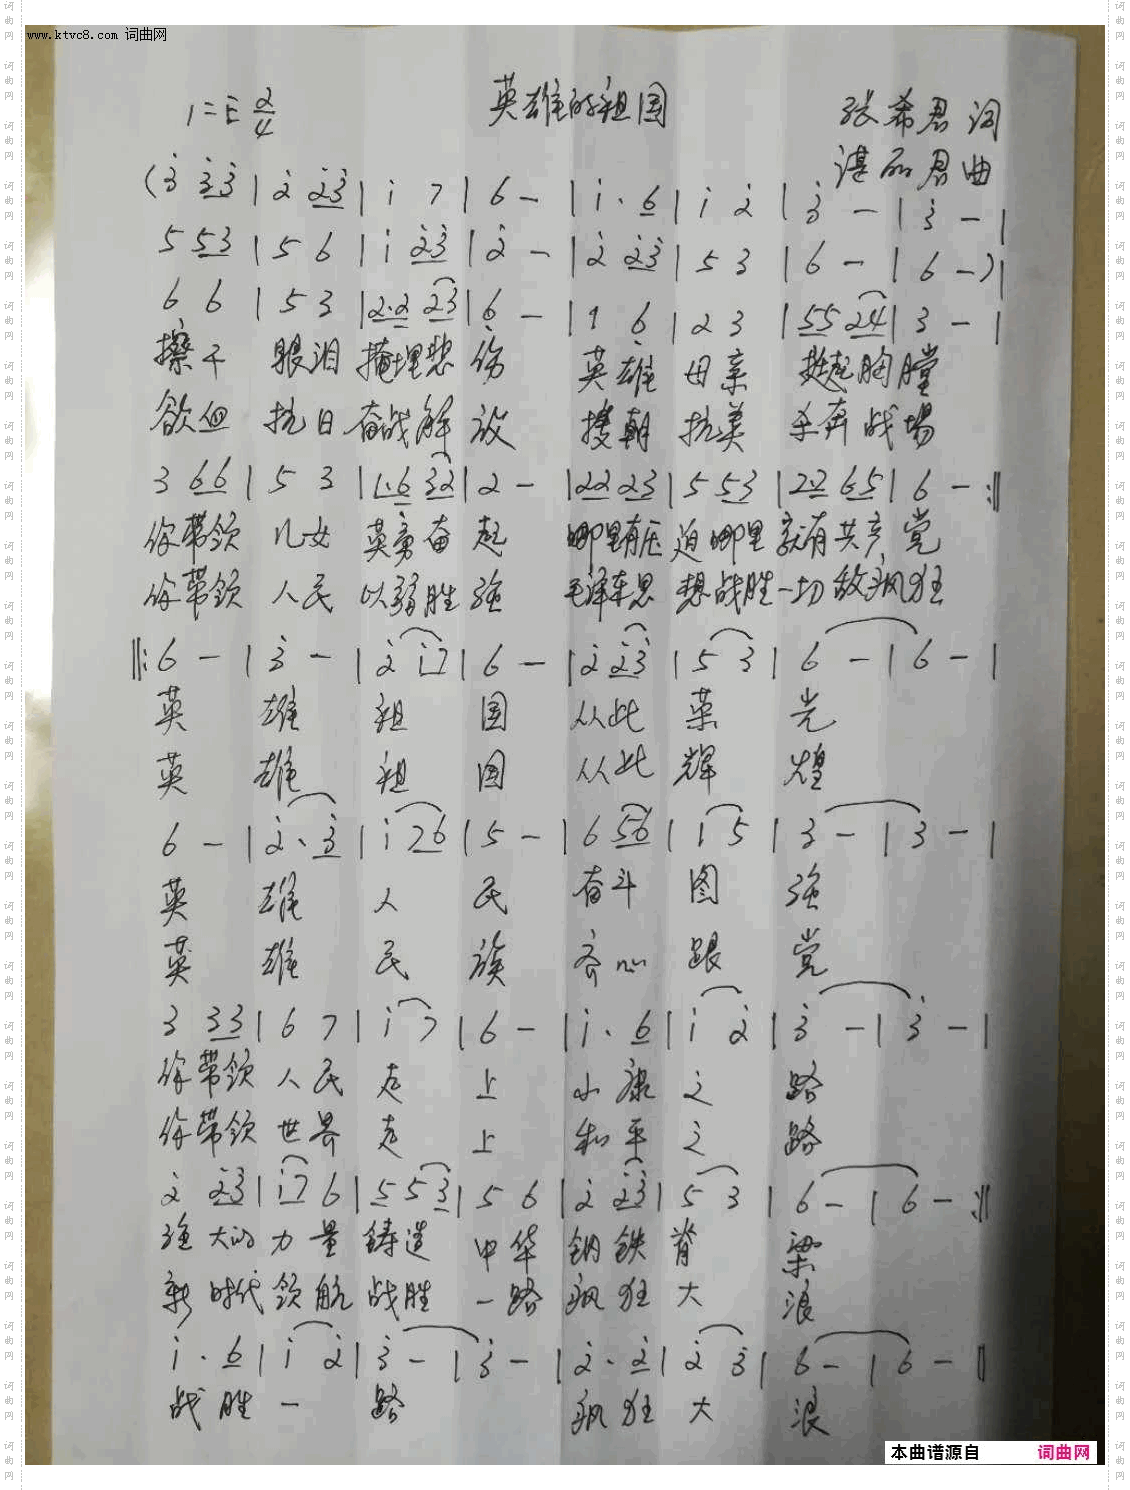 www.ktvc8.com 词曲网
1=E 2/4 英雄的祖国 张希君 词
谌丽君 曲
(3̇ 3̇3̇ | 2̇ 2̇3̇ | 1̇ 7 | 6 - | 1̇· 6 | 1̇ 2̇ | 3̇ - | 3̇ - |
5 53 | 5 6 | 1̇ 2̇3̇ | 2̇ - | 2̇ 2̇3̇ | 5 3 | 6 - | 6 -) |
6 6 | 5 3 | 2·2 23 | 6̣ - | 1 6̣ | 2 3 | 55 24 | 3 - |
擦干 眼泪 掩埋悲 伤 英雄 母亲 挺起胸膛
欲血 抗日 奋战解 放 援朝 抗美 杀奔战場
3 66 | 5 3 | 1·6 32 | 2 - | 22 23 | 5 53 | 22 65 | 6 - :||
你带领 儿女 英勇奋 起 哪里有压 迫哪里 就有共产 党
你带领 人民 以弱胜 强 毛泽东思 想战胜 一切敌疯狂
||: 6 - | 3̇ - | 2̇ 1̇7 | 6 - | 2̇ 2̇3̇ | 5 3 | 6 - | 6 - |
英 雄 祖 国 从此 荣 光
英 雄 祖 国 从此 辉 煌
6 - | 2̇· 3̇ | 1̇ 76 | 5 - | 6 56 | 1̇ 5 | 3 - | 3 - |
英 雄 人 民 奋斗 图 强
英 雄 民 族 齐心 跟 党
3 33 | 6 7 | 1̇ 7 | 6 - | 1̇· 6 | 1̇ 2̇ | 3̇ - | 3̇ - |
你带领 人民 走 上 小康 之 路
你带领 世界 走 上 和平 之 路
2̇ 2̇3̇ | 1̇7 6 | 5 53 | 5 6 | 2̇ 2̇3̇ | 5 3 | 6 - | 6 - :||
强 大的 力 量 铸造 中华 钢铁 脊 梁
新 时代 领航 战胜 一路 疯狂 大 浪
1̇· 6 | 1̇ 2̇ | 3̇ - | 3̇ - | 2̇· 2̇ | 2̇ 3̇ | 6 - | 6 - ||
战胜 一 路 疯狂 大 浪
本曲谱源自 词曲网